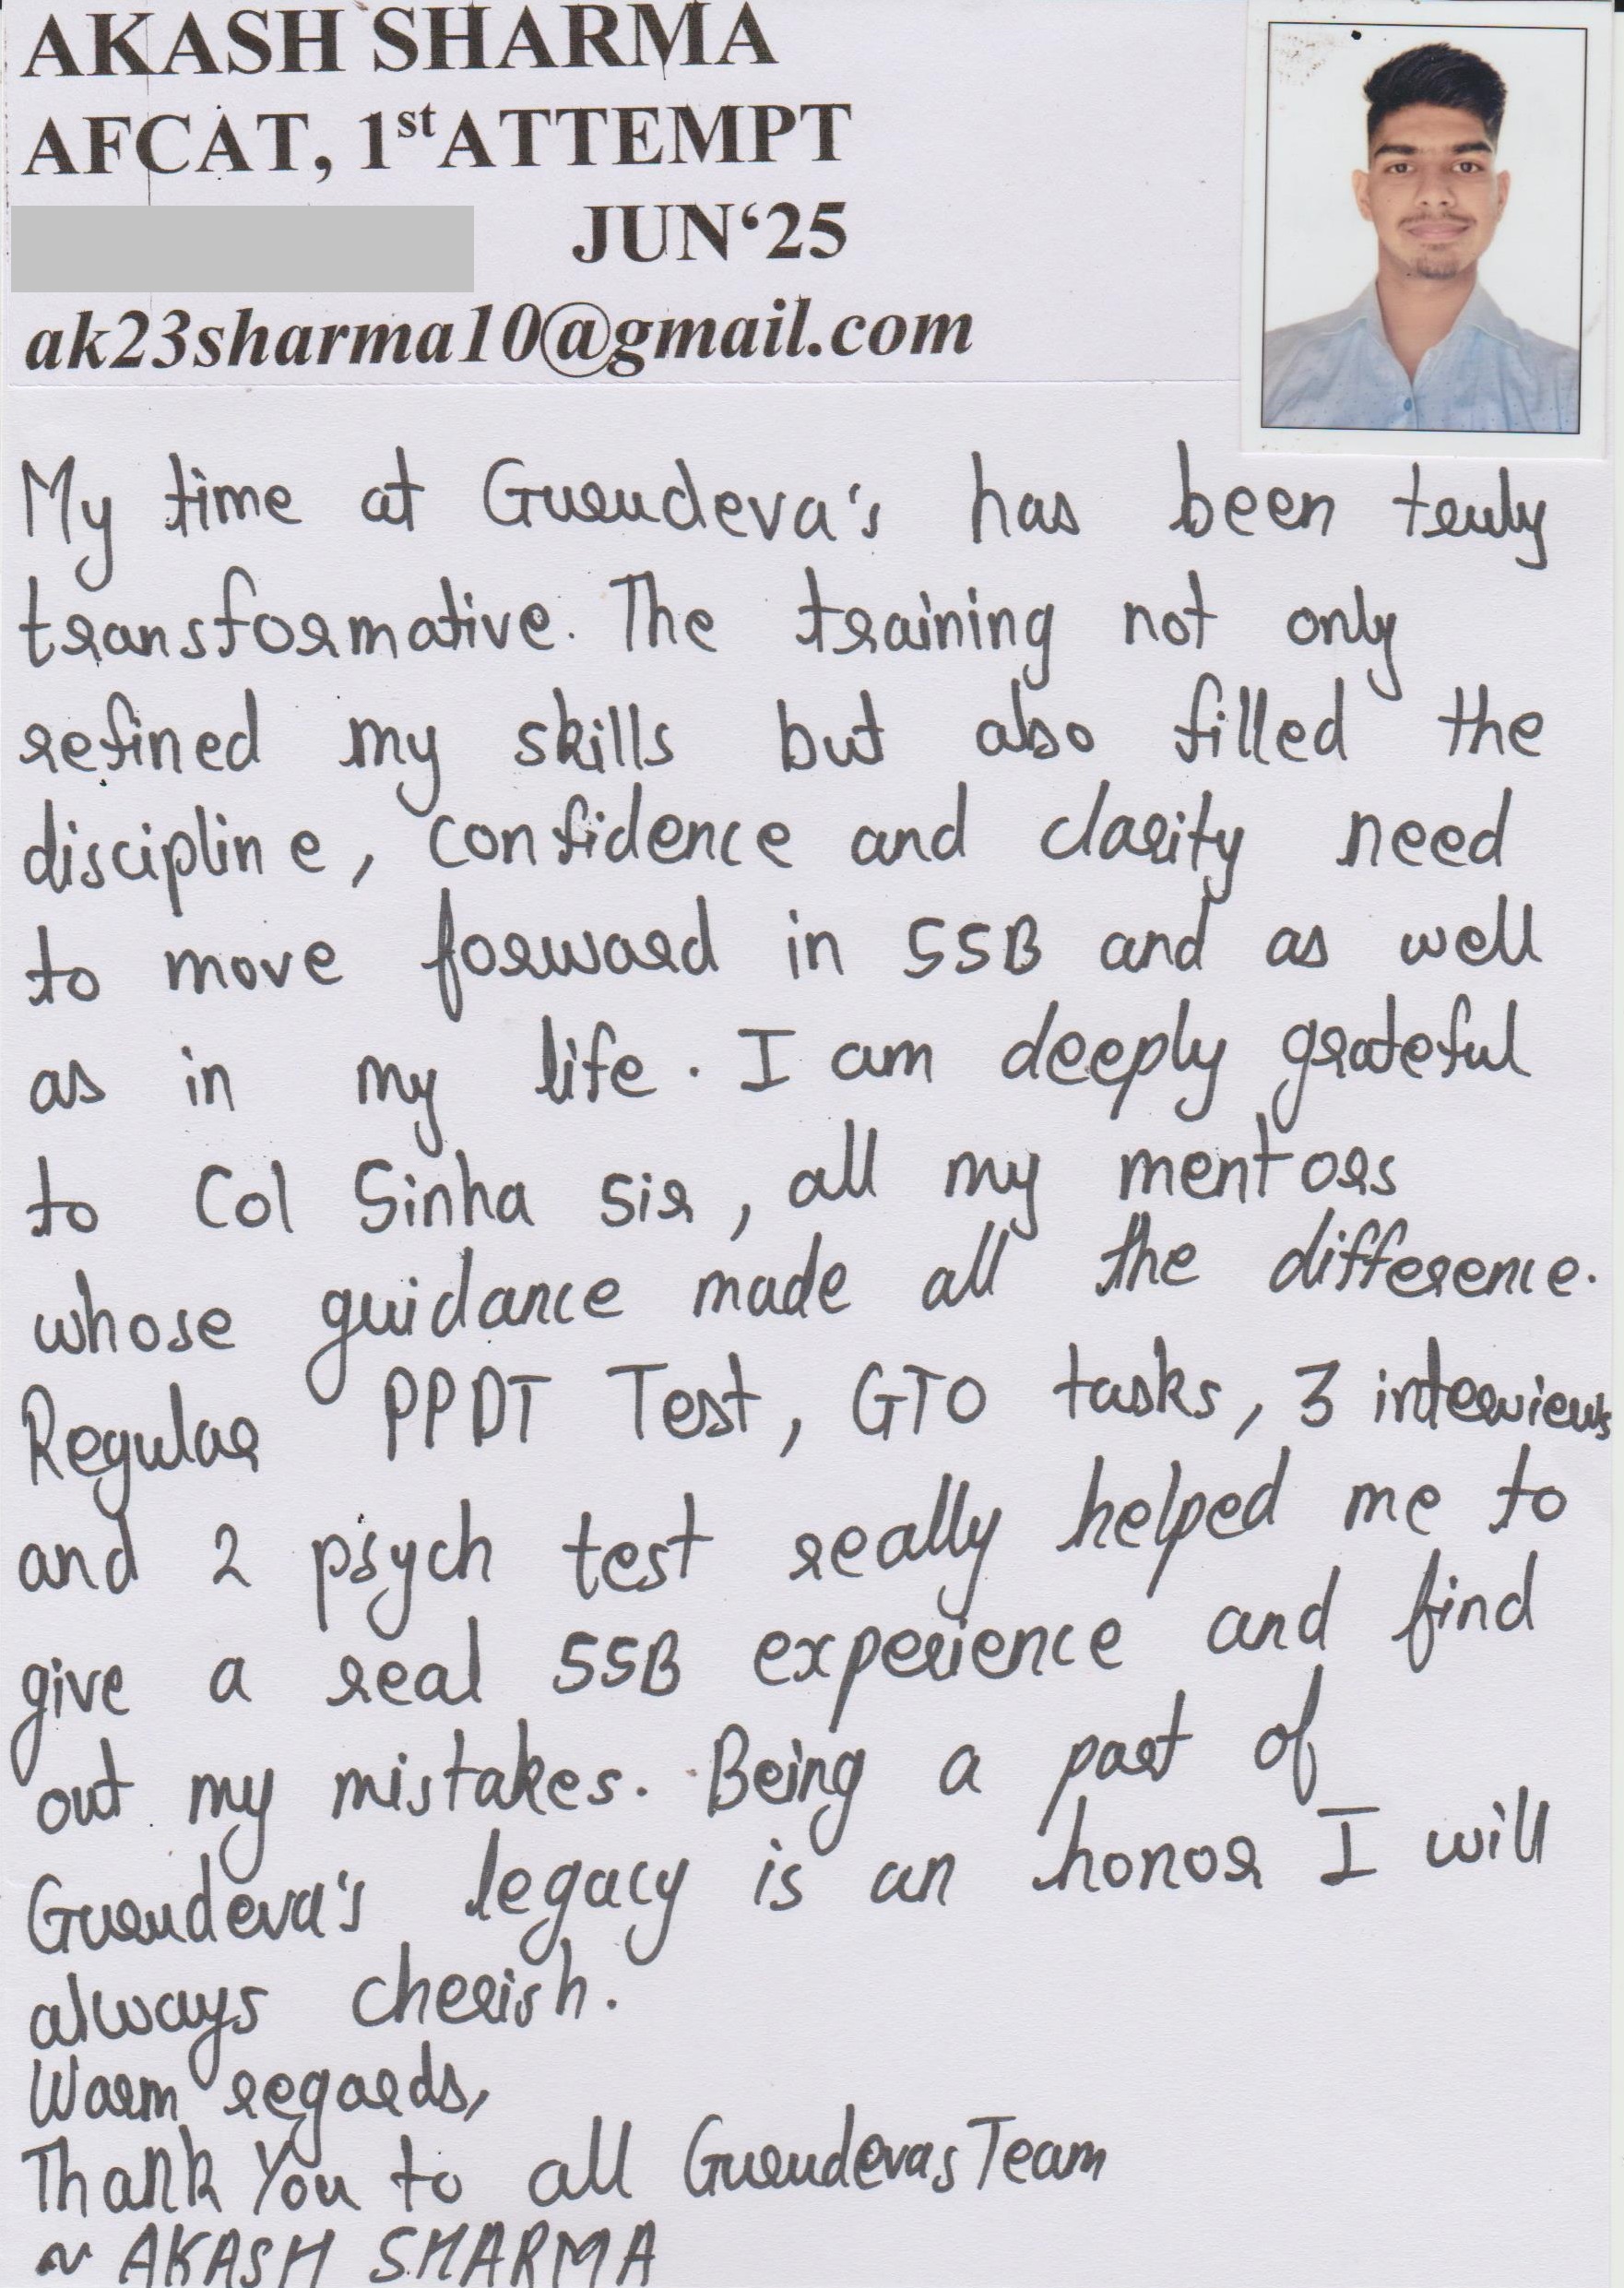 AKASH SHARMA
AFCAT, 1st ATTEMPT
JUN‘25
ak23sharma10@gmail.com
My time at Gurudeva's has been truly
transformative. The training not only
refined my skills but also filled the
discipline, confidence and clarity need
to move forward in SSB and as well
as in my life. I am deeply grateful
to Col Sinha sir, all my mentors
whose guidance made all the difference.
Regular PPDT Test, GTO tasks, 3 interviews
and 2 psych test really helped me to
give a real SSB experience and find
out my mistakes. Being a part of
Gurudeva's legacy is an honor I will
always cherish.
Warm regards,
Thank You to all Gurudevas Team
~ AKASH SHARMA